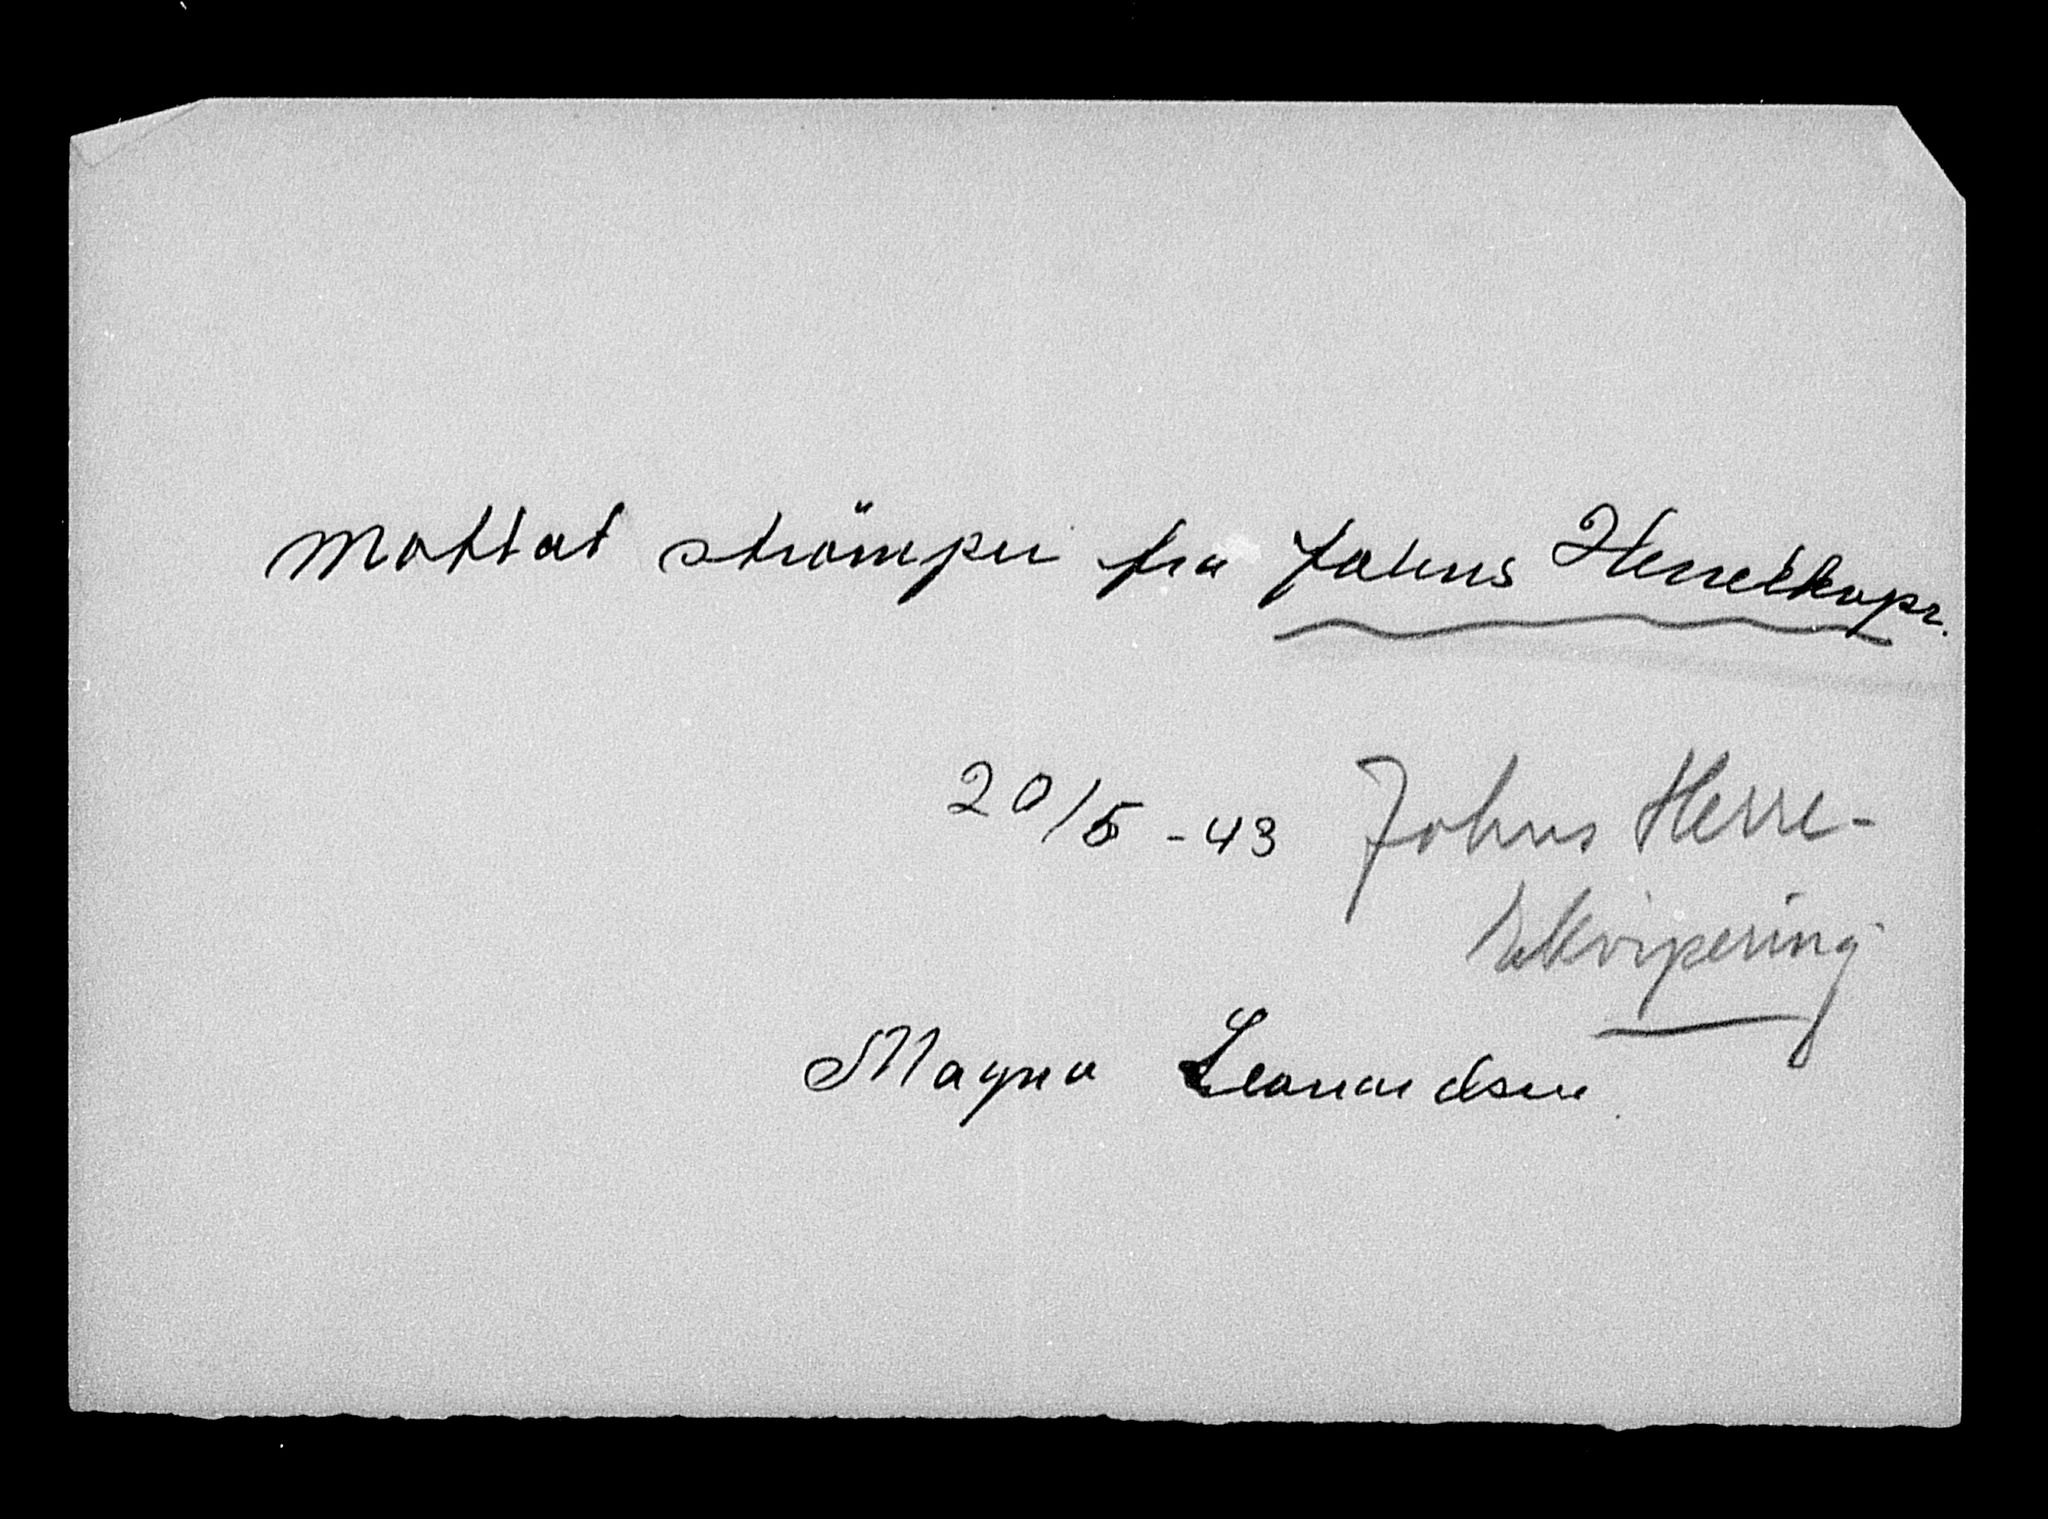 Mottat strömper fra Johns Herreekvpr.
20/5 - 43 Johns Herre-
Ekvipering
Magna Leonardsen